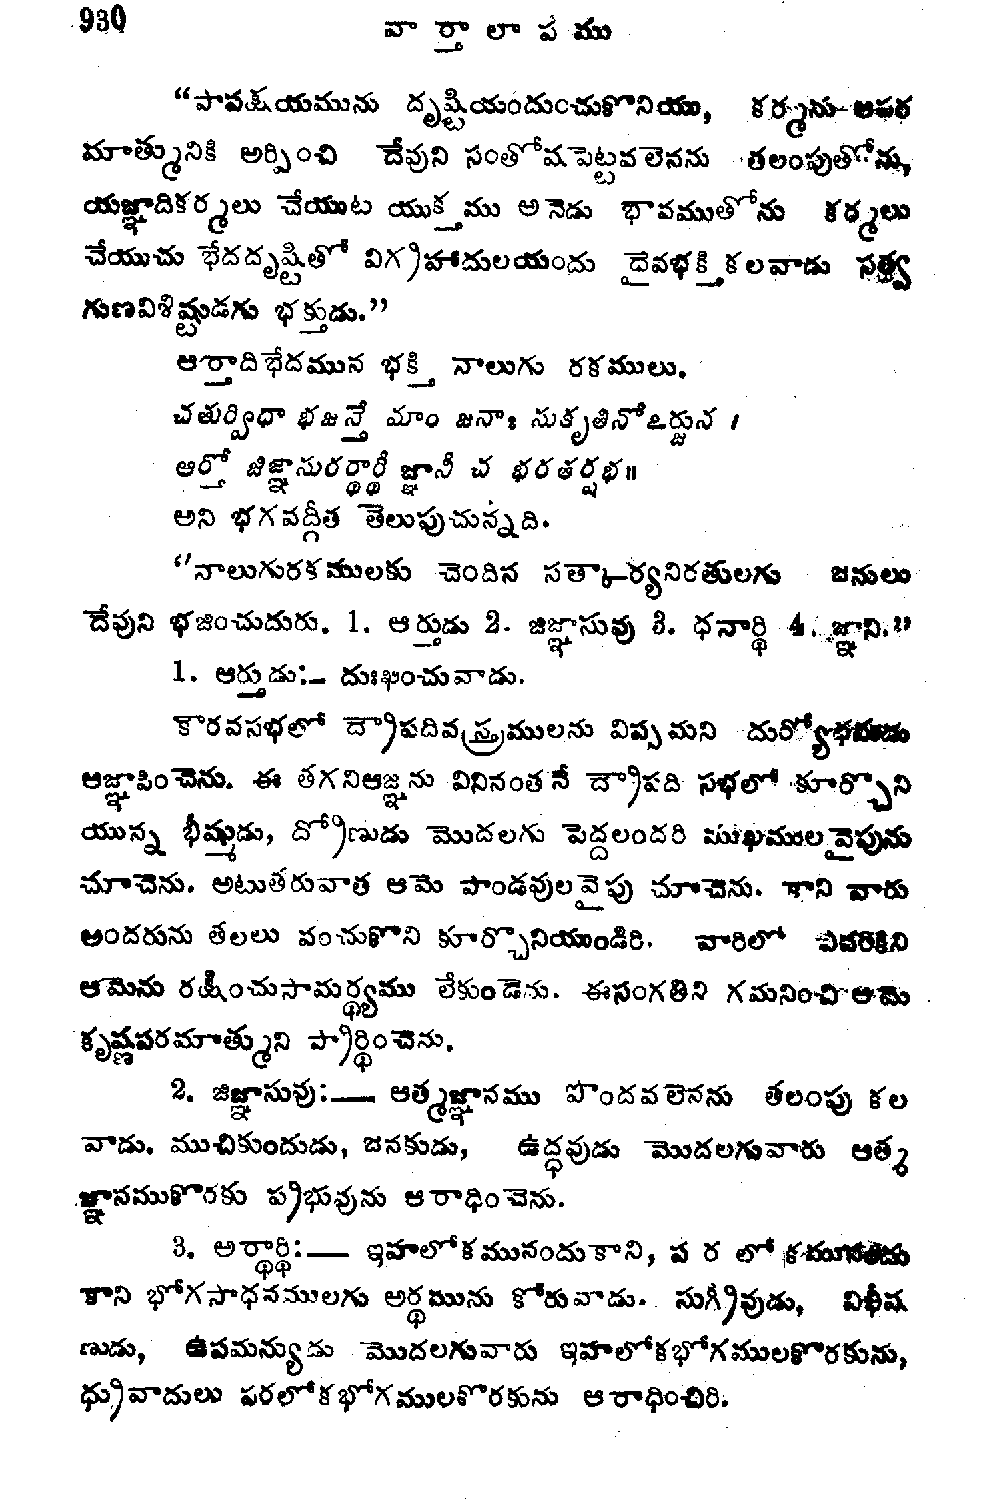 930
వార్తాలాపము
“పాపక్షయమును దృష్టియందుంచుకొనియు, కర్మను ఆపర
మాత్మునికి అర్పించి దేవుని సంతోషపెట్టవలెనను తలంపుతోను,
యజ్ఞాదికర్మలు చేయుట యుక్తము అనెడు భావముతోను కర్మలు
చేయుచు భేదదృష్టితో విగ్రహాదులయందు దైవభక్తికలవాడు సత్త్వ
గుణవిశిష్టుడగు భక్తుడు.”
ఆర్తాదిభేదమున భక్తి నాలుగు రకములు.
చతుర్విధా భజన్తే మాం జనాః సుకృతినోఽర్జున ।
ఆర్తో జిజ్ఞాసురర్థార్థీ జ్ఞానీ చ భరతర్షభ॥
అని భగవద్గీత తెలుపుచున్నది.
“నాలుగురకములకు చెందిన సత్కార్యనిరతులగు జనులు
దేవుని భజించుదురు. 1. ఆర్తుడు 2. జిజ్ఞాసువు 3. ధనార్థి 4. జ్ఞాని.”
1. ఆర్తుడు:— దుఃఖించువాడు.
కౌరవసభలో ద్రౌపదివస్త్రములను విప్పమని దుర్యోధనుడు
ఆజ్ఞాపించెను. ఈ తగనిఆజ్ఞను వినినంతనే ద్రౌపది సభలో కూర్చొని
యున్న భీష్ముడు, ద్రోణుడు మొదలగు పెద్దలందరి ముఖములవైపును
చూచెను. అటుతరువాత ఆమె పాండవులవైపు చూచెను. కాని వారు
అందరును తలలు వంచుకొని కూర్చొనియుండిరి. వారిలో ఎవరికిని
ఆమెను రక్షించుసామర్థ్యము లేకుండెను. ఈసంగతిని గమనించి ఆమె
కృష్ణపరమాత్ముని ప్రార్థించెను.
2. జిజ్ఞాసువు:— ఆత్మజ్ఞానము పొందవలెనను తలంపు కల
వాడు. ముచికుందుడు, జనకుడు, ఉద్ధవుడు మొదలగువారు ఆత్మ
జ్ఞానముకొరకు ప్రభువును ఆరాధించెను.
3. అర్థార్థి:— ఇహలోకమునందుకాని, పరలోకమునందు
కాని భోగసాధనములగు అర్థమును కోరువాడు. సుగ్రీవుడు, విభీష
ణుడు, ఉపమన్యుడు మొదలగువారు ఇహలోకభోగములకొరకును,
ధ్రువాదులు పరలోకభోగములకొరకును ఆరాధించిరి.